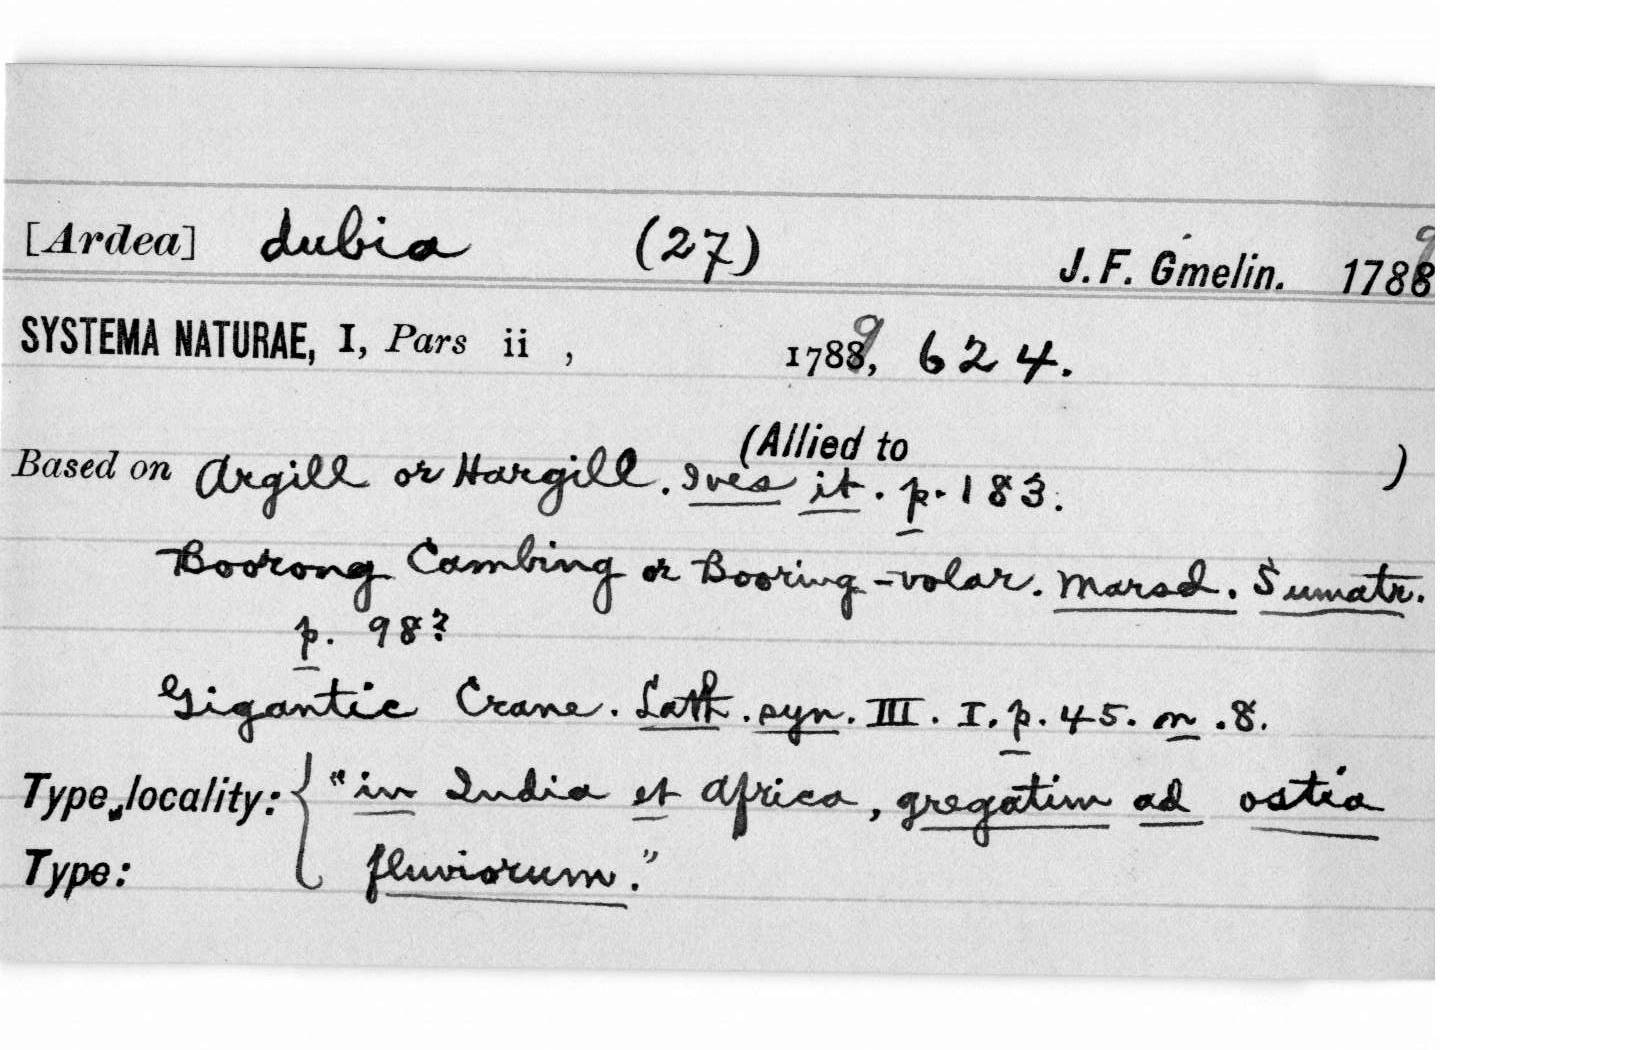 [Ardea] dubia (27) J. F. Gmelin. 1788 9
SYSTEMA NATURAE, I, Pars ii , 1788, 9 624.
(Allied to )
Based on Argill or Hargill. Ives it. p. 183.
Boorong Cambing or Booring-volar. Marsd. Sumatr.
p. 98?
Gigantic Crane. Lath. syn. III. I. p. 45. n. 8.
Type locality: { "in India et Africa, gregatim ad ostia
Type: fluviorum."